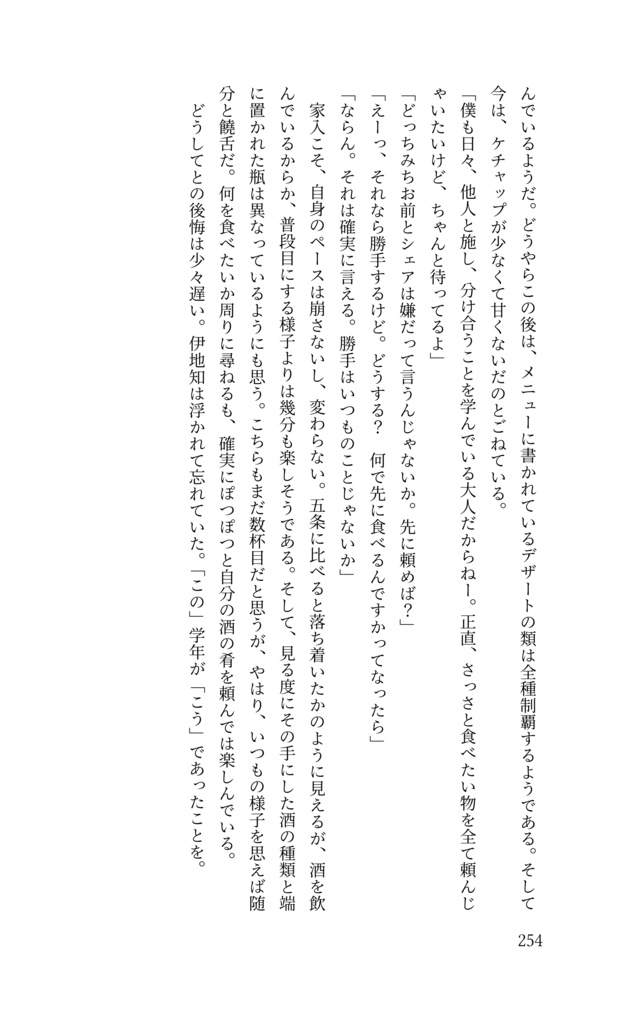 んでいるようだ。どうやらこの後は、メニューに書かれているデザートの類は全種制覇するようである。そして
今は、ケチャップが少なくて甘くないだのとごねている。
「僕も日々、他人と施し、分け合うことを学んでいる大人だからねー。正直、さっさと食べたい物を全て頼んじ
ゃいたいけど、ちゃんと待ってるよ」
「どっちみちお前とシェアは嫌だって言うんじゃないか。先に頼めば？」
「えーっ、それなら勝手するけど。どうする？　何で先に食べるんですかってなったら」
「ならん。それは確実に言える。勝手はいつものことじゃないか」
　家入こそ、自身のペースは崩さないし、変わらない。五条に比べると落ち着いたかのように見えるが、酒を飲
んでいるからか、普段目にする様子よりは幾分も楽しそうである。そして、見る度にその手にした酒の種類と端
に置かれた瓶は異なっているようにも思う。こちらもまだ数杯目だと思うが、やはり、いつもの様子を思えば随
分と饒舌だ。何を食べたいか周りに尋ねるも、確実にぽつぽつと自分の酒の肴を頼んでは楽しんでいる。
　どうしてとの後悔は少々遅い。伊地知は浮かれて忘れていた。「この」学年が「こう」であったことを。
254